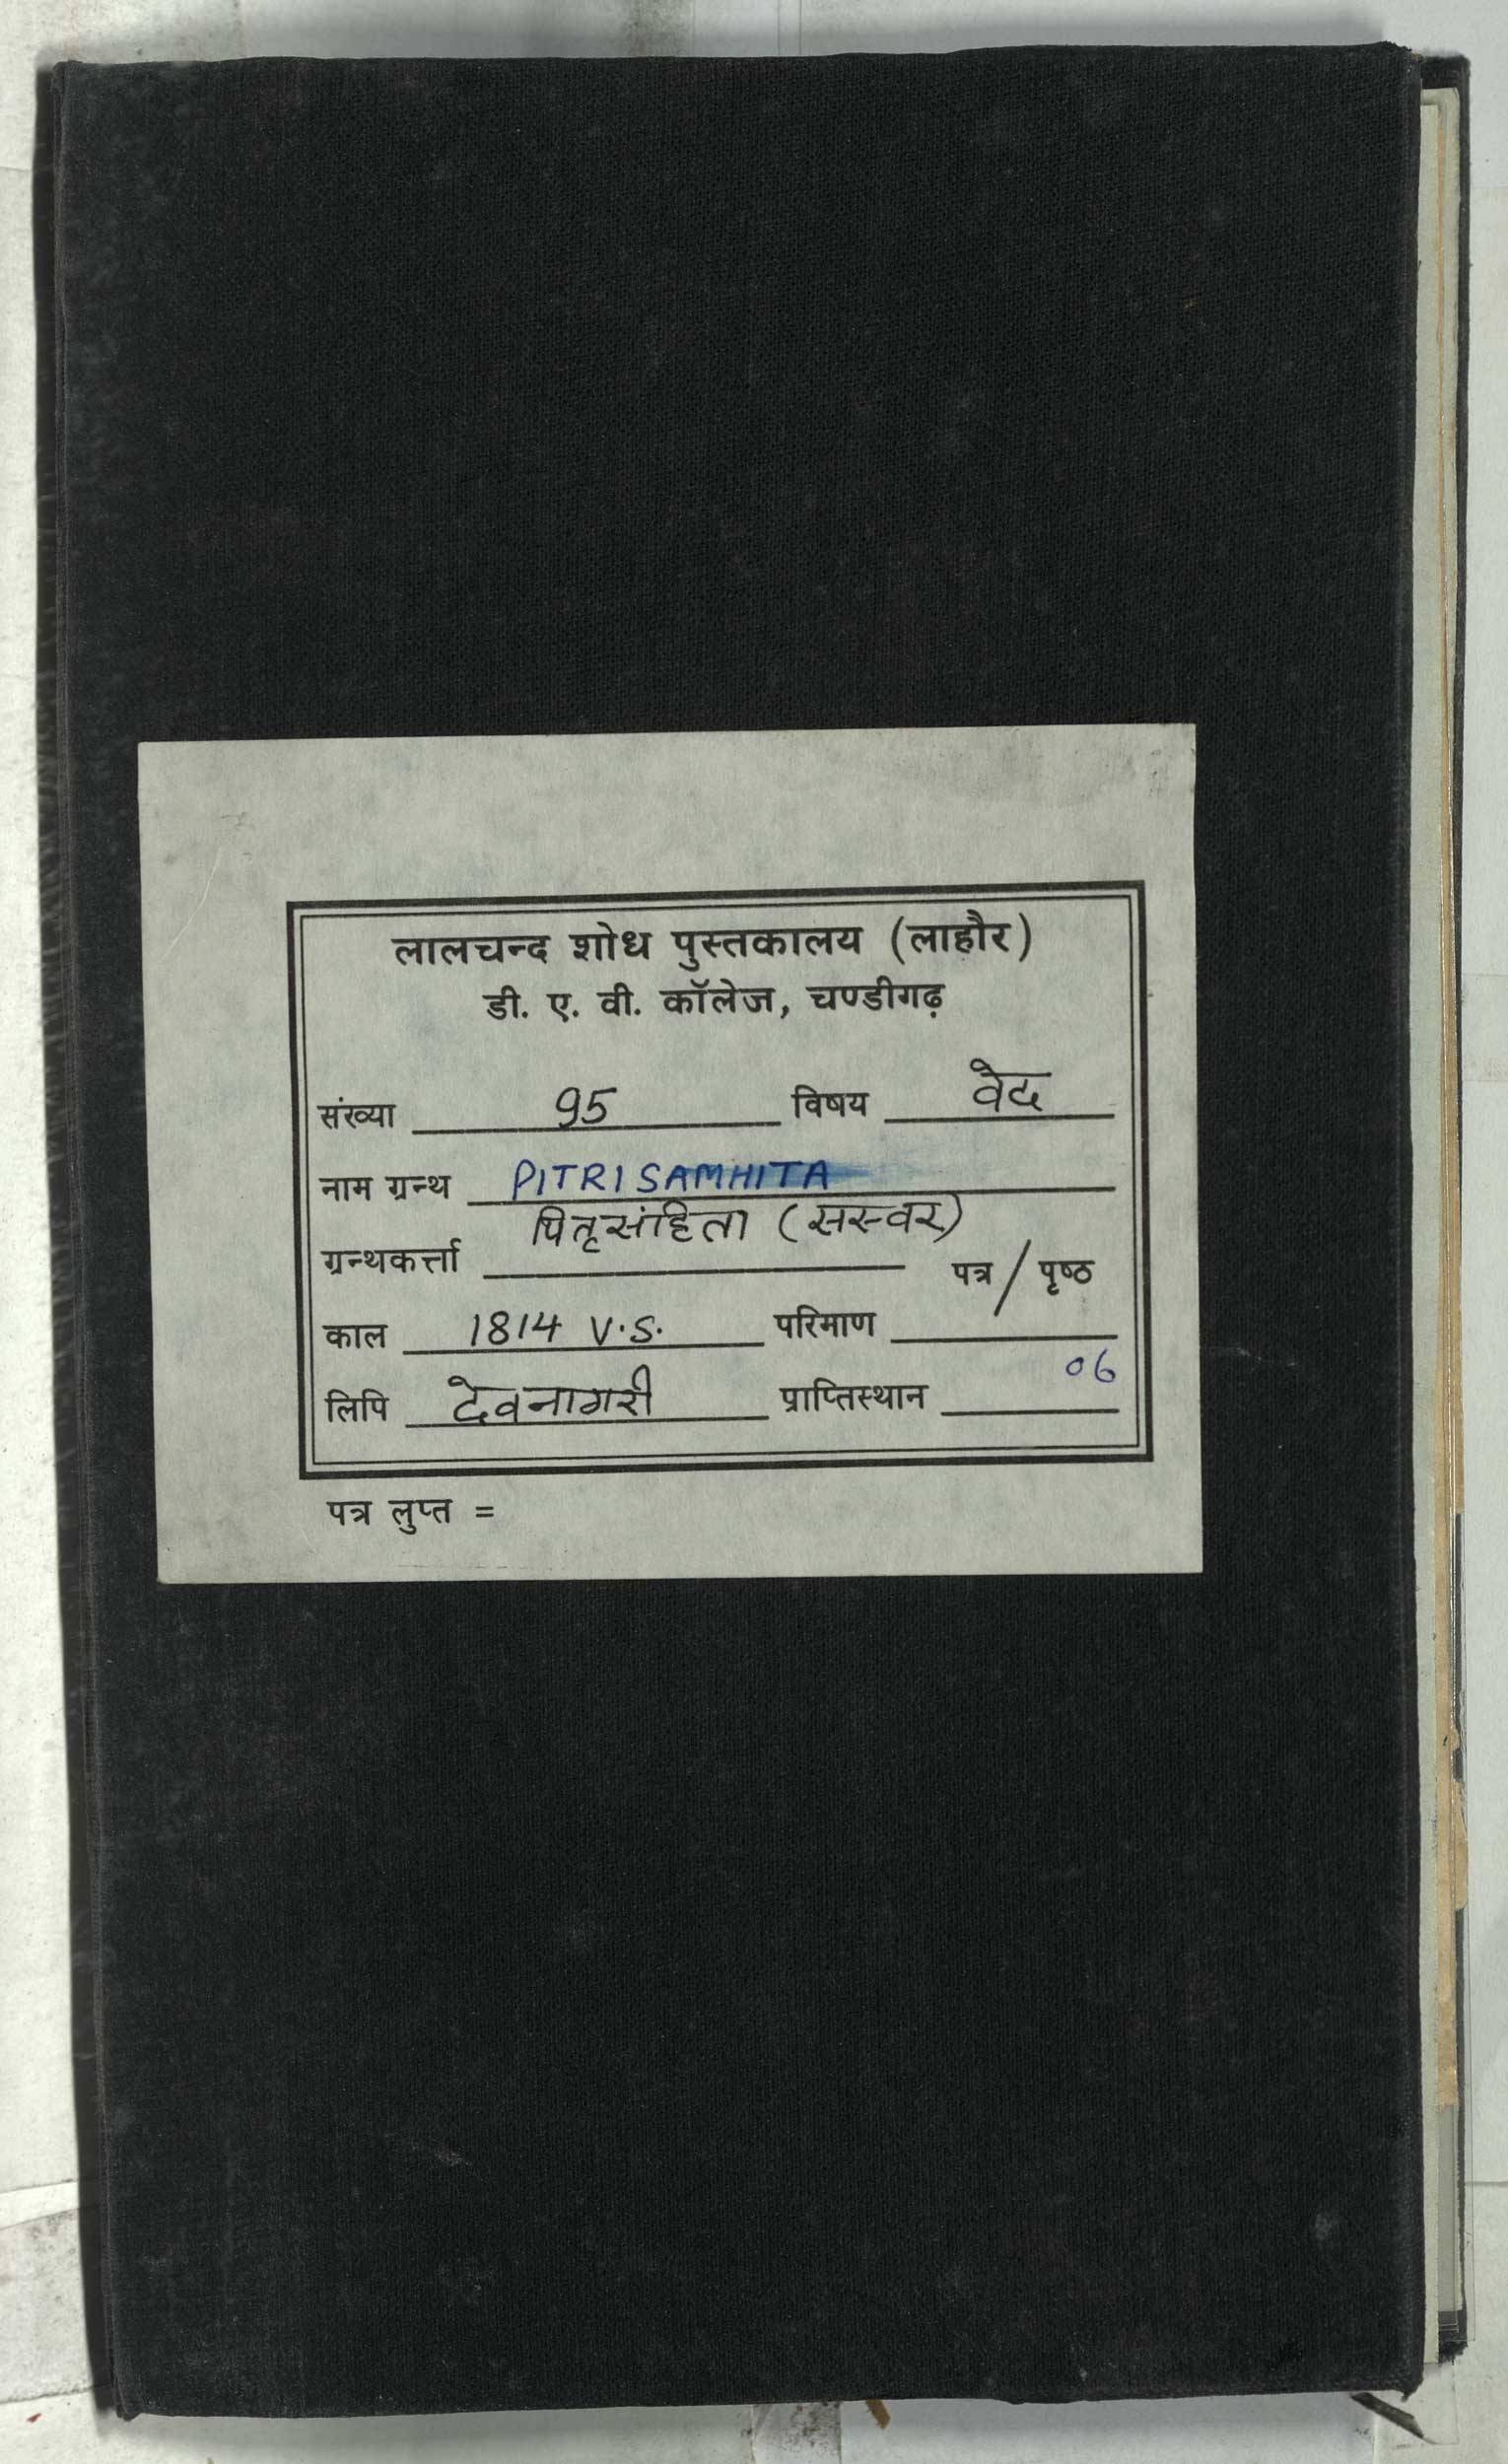 लालचन्द शोध पुस्तकालय (लाहौर)
डी. ए. वी. कॉलेज, चण्डीगढ़
संख्या 95 विषय वेद
नाम ग्रन्थ PITRI SAMHITA
पितृसंहिता (सस्वर)
ग्रन्थकर्त्ता पत्र / पृष्ठ
काल 1814 V.S. परिमाण
06
लिपि देवनागरी प्राप्तिस्थान
पत्र लुप्त =